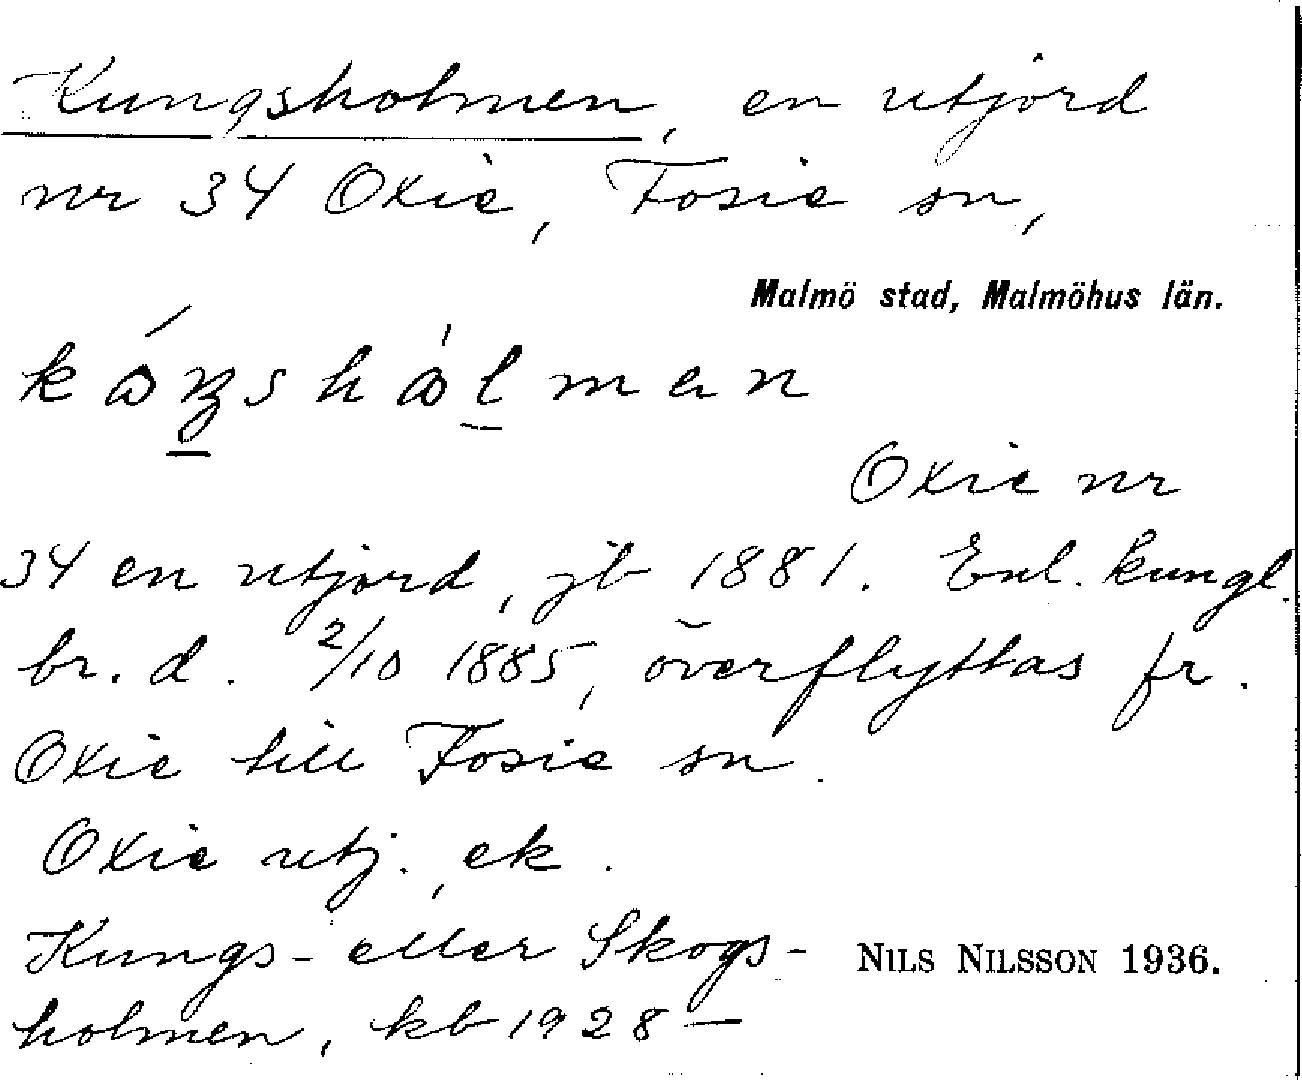 Kungsholmen, en utjord
nr 34 Oxie, Fosie sn,
Malmö stad, Malmöhus län.
Oxie nr
34 en utjord, jb 1881. Enl. kungl.
br. d. 2/10 1885, överflyttas fr.
Oxie till Fosie sn.
Oxie utj., ek.
Kungs- eller Skogs-
holmen, kb 1928—
NILS NILSSON 1936.